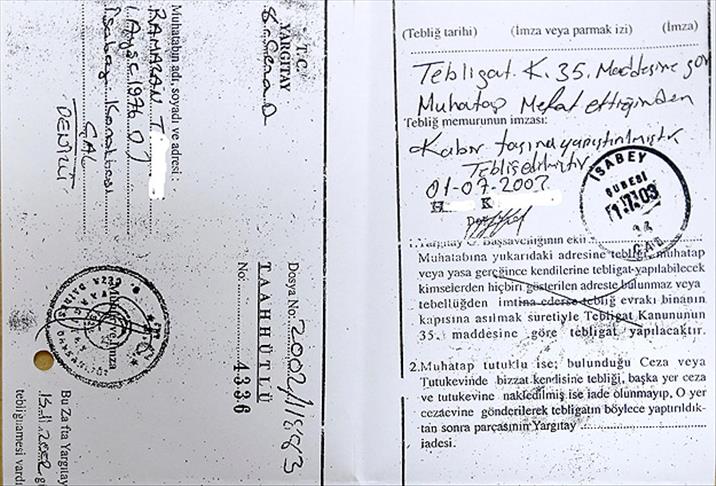 T.C.
YARGITAY
8. Ceza D
Muhatabın adı, soyadı ve adresi :
RAMAZAN T
İsabey Kasabası
ÇAL
DENİZLİ
Dosya No: 2002/11883
TAAHHÜTLÜ
No: 4336
Mühür İmza
Bu Zarfta Yargıtay
15.11.2002 g
tebliğnamesi vardı
(Tebliğ tarihi) (İmza veya parmak izi) (İmza)
Tebligat. K. 35. Maddesine gör
Muhatap Mefat ettiğinden
Tebliğ memurunun imzası:
Kabir taşına yapıştırılmıştır
Tebliğ edilmiştir
01-07-2003
H K
İSABEY
ŞUBESİ
1.7.03
ÇAL
1. Yargıtay C. Başsavcılığının ekli
Muhatabına yukarıdaki adresine tebliği, muhatap
veya yasa gereğince kendilerine tebligat yapılabilecek
kimselerden hiçbiri gösterilen adreste bulunmaz veya
tebellüğden imtina ederse tebliğ evrakı binanın
kapısına asılmak suretiyle Tebligat Kanununun
35. maddesine göre tebligat yapılacaktır.
2. Muhatap tutuklu ise; bulunduğu Ceza veya
Tutukevinde bizzat kendisine tebliği, başka yer ceza
ve tutukevine nakledilmiş ise iade olunmayıp, O yer
cezaevine gönderilerek tebligatın böylece yaptırıldık-
tan sonra parçasının Yargıtay
iadesi.